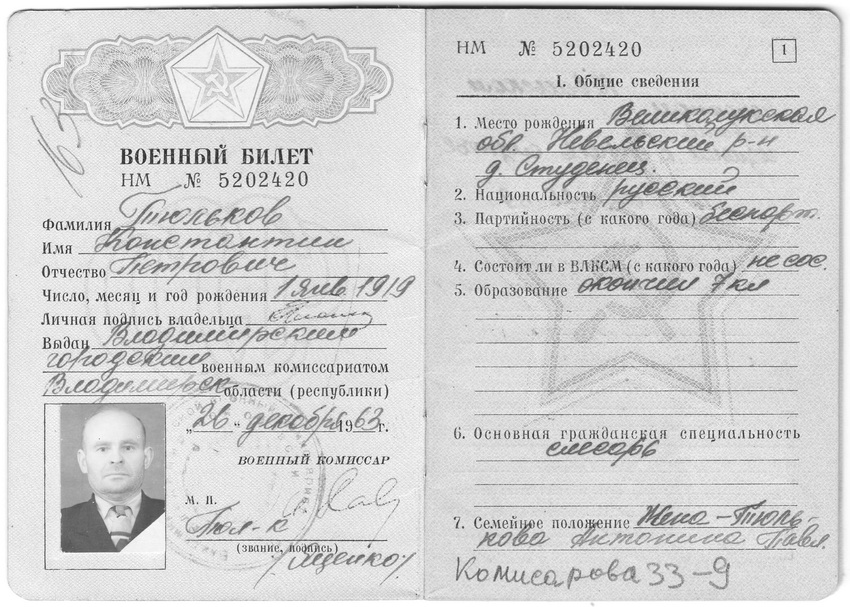 63
ВОЕННЫЙ БИЛЕТ
НМ № 5202420
Фамилия Тюльков
Имя Константин
Отчество Петрович
Число, месяц и год рождения 1 янв. 1919
Личная подпись владельца
Выдан Владимирским
городским военным комиссариатом
Владимирск. области (республики)
„26" декабря 1963 г.
ВОЕННЫЙ КОМИССАР
М. П.
Пол-к
(звание, подпись)
/Яценко/
НМ № 5202420 1
I. Общие сведения
1. Место рождения Великолукская
обл. Невельский р-н
д. Студенец.
2. Национальность русский
3. Партийность (с какого года) беспарт.
4. Состоит ли в ВЛКСМ (с какого года) не сос.
5. Образование окончил 7 кл
6. Основная гражданская специальность
слесарь
7. Семейное положение Жена – Тюль-
кова Антонина Павл.
Комисарова 33-9